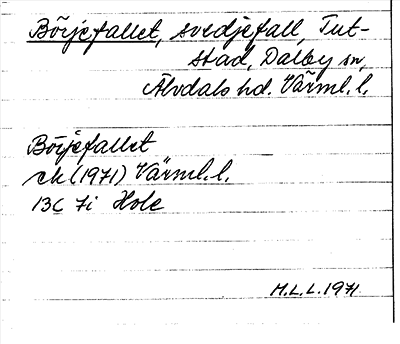 Börjefallet, svedjefall, Tut-
stad, Dalby sn,
Älvdals hd. Värml. l.
Börjefallet
ek (1971) Värml. l.
13C 7i Hole
H.L.L. 1971